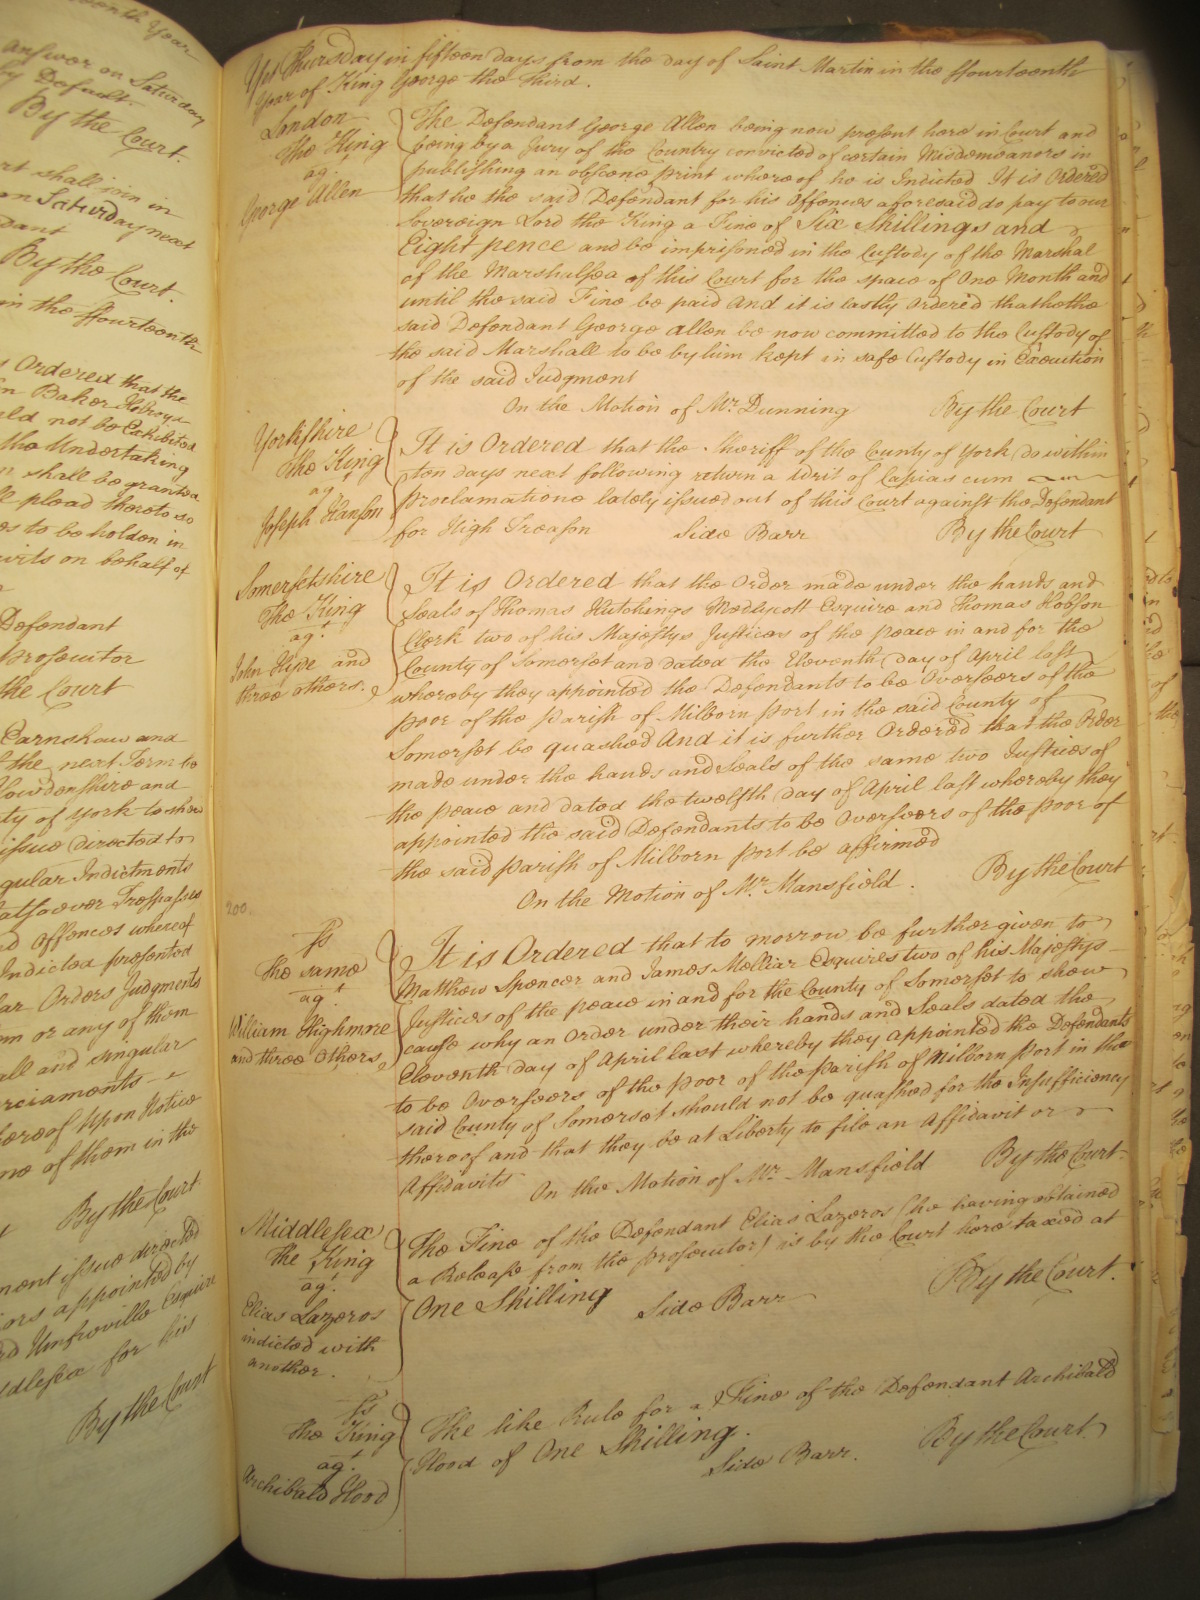 onth Year
answer on Saturday
by Default.
By the Court.
rt shall join in
on Saturday next
dant
By the Court.
in the ffourteenth
s Ordered that the
n Baker
uld not be Exhibited
the Undertaking
n shall be granted
ll plead thereto so
es to be holden in
urts on behalf of
Defendant
prosecutor
the Court
Earnshaw and
f the next Term to
Howdenshire and
ty of York to shew
issue directed to
gular Indictments
atsoever Trespasses
nd Offences whereof
Indicted presented
lar Orders Judgments
em or any of them
all and singular
rciaments
hereof Upon Notice
me of them in the
By the Court
ment issue directed
ors appointed by
rd Umfreville Esquire
ddlesex for his
By the Court
Yet Thursday in fifteen days from the day of Saint Martin in the ffourteenth
Year of King George the Third.
London
The King
agt
George Allen
The Defendant George Allen being now present here in Court and
being by a Jury of the Country convicted of certain Misdemeanors in
publishing an obscene print whereof he is Indicted It is Ordered
that he the said Defendant for his Offences aforesaid do pay to our
Sovereign Lord the King a Fine of Six Shillings and
Eight pence and be imprisoned in the Custody of the Marshal
of the Marshalsea of this Court for the space of One Month and
until the said Fine be paid And it is lastly Ordered that he the
said Defendant George Allen be now committed to the Custody of
the said Marshall to be by him kept in safe Custody in Execution
of the said Judgment
On the Motion of Mr. Dunning By the Court
Yorkshire
The King
agt
Joseph Hanson
It is Ordered that the Sheriff of the County of York do within
ten days next following return a Writ of Capias cum
proclamatione lately issued out of this Court against the Defendant
for High Treason Side Barr By the Court
Somersetshire
The King
agt
John Hyde and
three others.
It is Ordered that the Order made under the hands and
Seals of Thomas Hutchings Medlycott Esquire and Thomas Hobson
Clerk two of his Majestys Justices of the peace in and for the
County of Somerset and dated the Eleventh day of April last
whereby they appointed the Defendants to be Overseers of the
poor of the parish of Milborn port in the said County of
Somerset be quashed And it is further Ordered that the Order
made under the hands and Seals of the same two Justices of
the peace and dated the twelfth day of April last whereby they
appointed the said Defendants to be Overseers of the poor of
the said parish of Milborn port be affirmed
On the Motion of Mr. Mansfield. By the Court
200.
ss
The same
agt
William Highmore
and three Others
It is Ordered that to morrow be further given to
Matthew Spencer and James Melliar Esquires two of his Majestys
Justices of the peace in and for the County of Somerset to shew
cause why an Order under their hands and Seals dated the
Eleventh day of April last whereby they appointed the Defendants
to be Overseers of the poor of the parish of Milborn port in the
said County of Somerset should not be quashed for the Insufficiency
thereof and that they be at Liberty to file an Affidavit or
Affidavits On the Motion of Mr. Mansfield By the Court
Middlesex
The King
agt
Elias Lazeros
indicted with
another.
The Fine of the Defendant Elias Lazeros (he having obtained
a Release from the prosecutor) is by the Court here taxed at
One Shilling Side Barr By the Court.
ss
The King
agt
Archibald Hood
The like Rule for a Fine of the Defendant Archibald
Hood of One Shilling.
Side Barr. By the Court